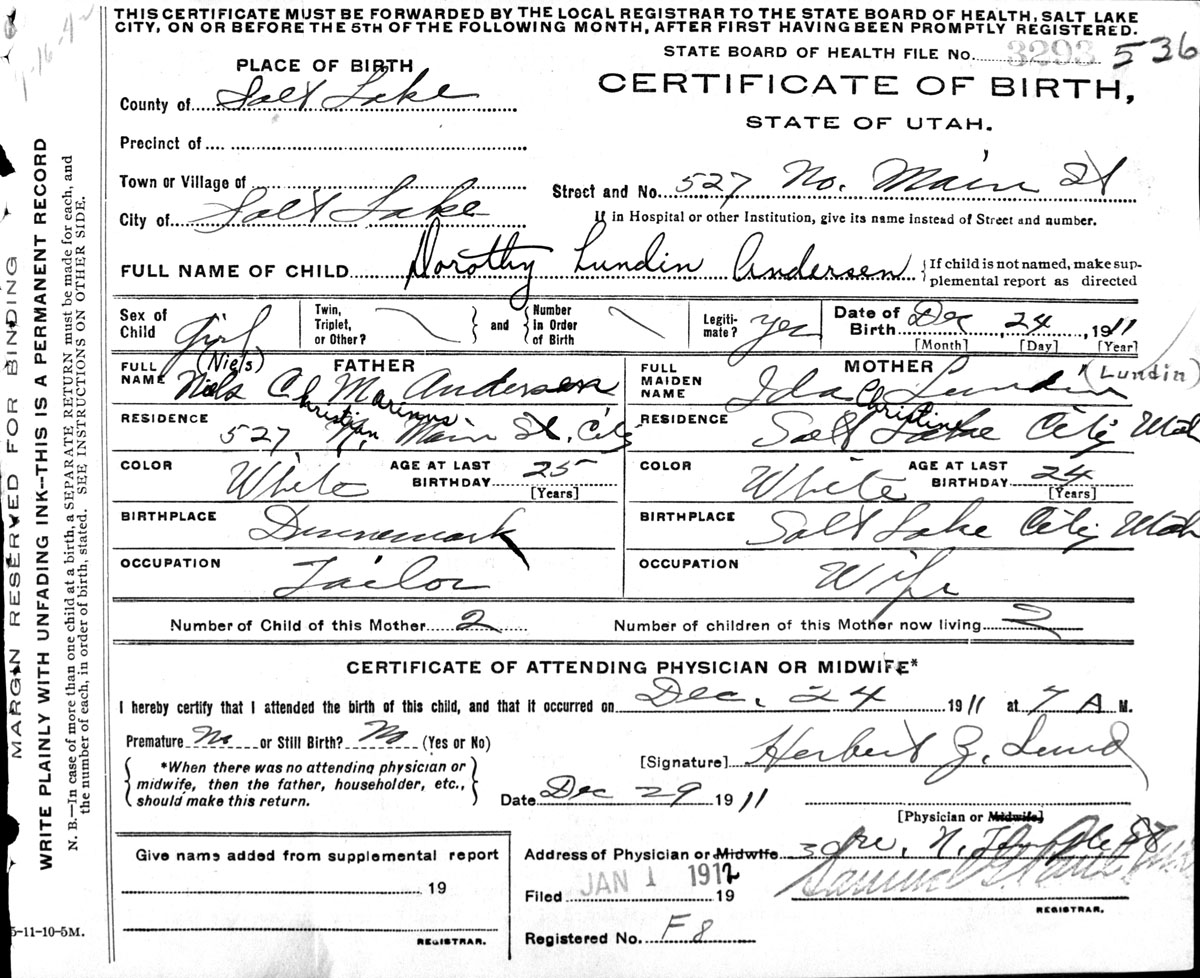 THIS CERTIFICATE MUST BE FORWARDED BY THE LOCAL REGISTRAR TO THE STATE BOARD OF HEALTH, SALT LAKE
CITY, ON OR BEFORE THE 5TH OF THE FOLLOWING MONTH, AFTER FIRST HAVING BEEN PROMPTLY REGISTERED.
STATE BOARD OF HEALTH FILE No. 3293 536
PLACE OF BIRTH
CERTIFICATE OF BIRTH,
STATE OF UTAH.
County of Salt Lake
Precinct of
Town or Village of
Street and No. 527 No. Main St
City of Salt Lake
If in Hospital or other Institution, give its name instead of Street and number.
FULL NAME OF CHILD Dorothy Lundin Andersen {If child is not named, make sup-
plemental report as directed
Sex of Child Girl
Twin, Triplet, or Other?
and
Number in Order of Birth
Legiti-mate? Yes
Date of Birth Dec 24, 1911
[Month] [Day] [Year]
FULL NAME FATHER
(Niels)
Nils C. M. Andersen
Christian Marinus
FULL MAIDEN NAME MOTHER
Ida C Lundin (Lundin)
Christine
RESIDENCE 527 N. Main St. City
RESIDENCE Salt Lake City Utah
COLOR White AGE AT LAST BIRTHDAY 25
[Years]
COLOR White AGE AT LAST BIRTHDAY 24
[Years]
BIRTHPLACE Dennemark
BIRTHPLACE Salt Lake City Utah
OCCUPATION Tailor
OCCUPATION Wife
Number of Child of this Mother 2 Number of children of this Mother now living 2
CERTIFICATE OF ATTENDING PHYSICIAN OR MIDWIFE*
I hereby certify that I attended the birth of this child, and that it occurred on Dec. 24 1911 at 7 A M.
Premature No or Still Birth? No (Yes or No)
[Signature] Herbert Z. Lund
*When there was no attending physician or
midwife, then the father, householder, etc.,
should make this return.
Date Dec 29 1911
[Physician or Midwife]
Give name added from supplemental report
19
REGISTRAR.
Address of Physician or Midwife N. Temple St
Filed JAN 1 1912 19
REGISTRAR.
Registered No. F8
5-11-10-5M.
MARGIN RESERVED FOR BINDING
WRITE PLAINLY WITH UNFADING INK—THIS IS A PERMANENT RECORD
N. B.—In case of more than one child at a birth, a SEPARATE RETURN must be made for each, and
the number of each, in order of birth, stated. SEE INSTRUCTIONS ON OTHER SIDE.